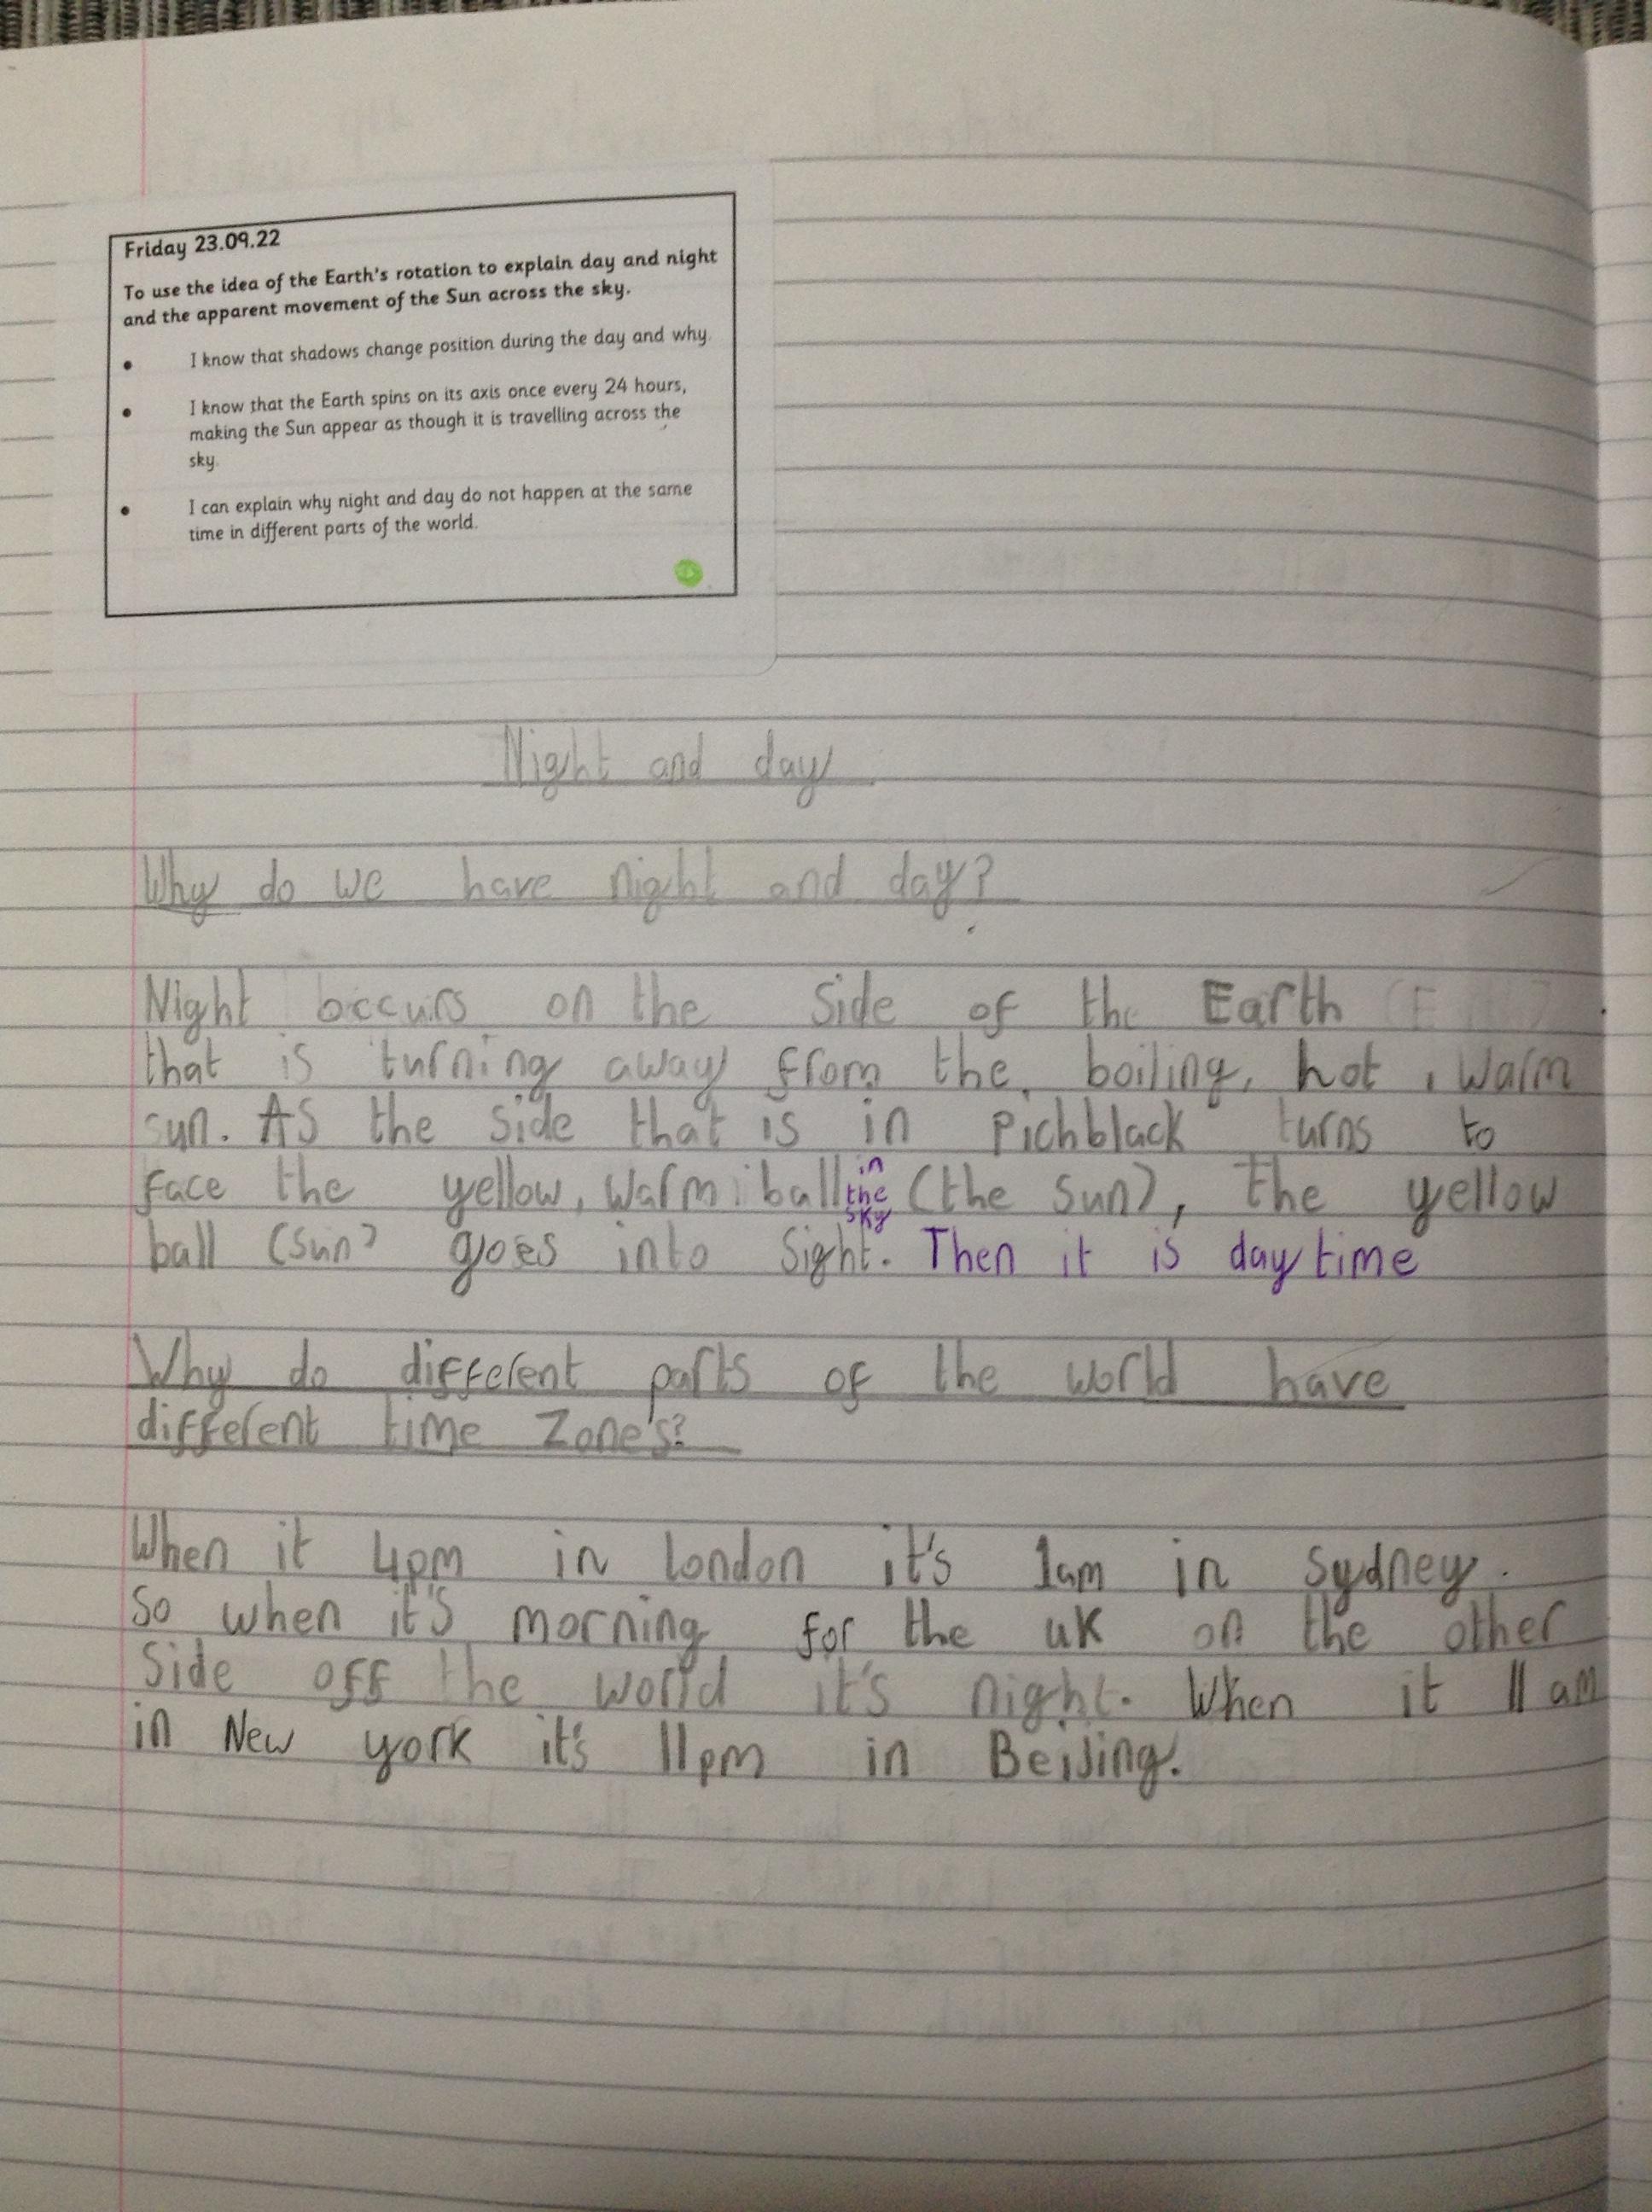 Friday 23.09.22
To use the idea of the Earth's rotation to explain day and night
and the apparent movement of the Sun across the sky.
• I know that shadows change position during the day and why.
• I know that the Earth spins on its axis once every 24 hours,
making the Sun appear as though it is travelling across the
sky.
• I can explain why night and day do not happen at the same
time in different parts of the world.
Night and day
Why do we have night and day?
Night occurs on the side of the Earth
that is turning away from the, boiling, hot, warm
sun. As the side that is in Pichblack turns to
face the yellow, warm ball in the sky (the sun), the yellow
ball (sun) goes into sight. Then it is daytime
Why do different parts of the world have
different time zone's?
When it 4pm in london it's 1am in sydney.
So when it's morning for the uk on the other
side off the world it's night. When it 11am
in New york it's 11pm in Beijing.